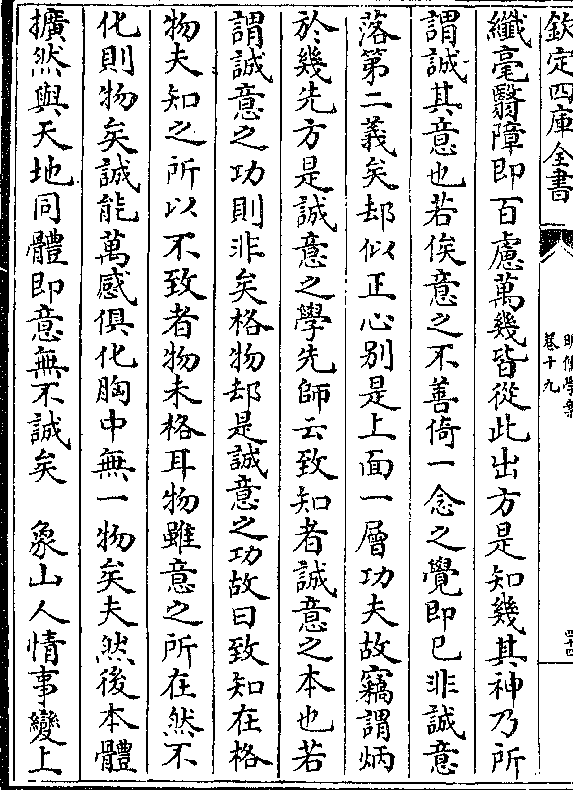 欽定四庫全書
明儒學案
卷十九
四十四
纖毫翳障即百慮萬幾皆從此出方是知幾其神乃所
謂誠其意也若俟意之不善倚一念之覺即已非誠意
落第二義矣却似正心别是上面一層功夫故竊謂炳
於幾先方是誠意之學先師云致知者誠意之本也若
謂誠意之功則非矣格物却是誠意之功故曰致知在格
物夫知之所以不致者物未格耳物雖意之所在然不
化則物矣誠能萬感俱化胸中無一物矣夫然後本體
擴然與天地同體即意無不誠矣　象山人情事變上